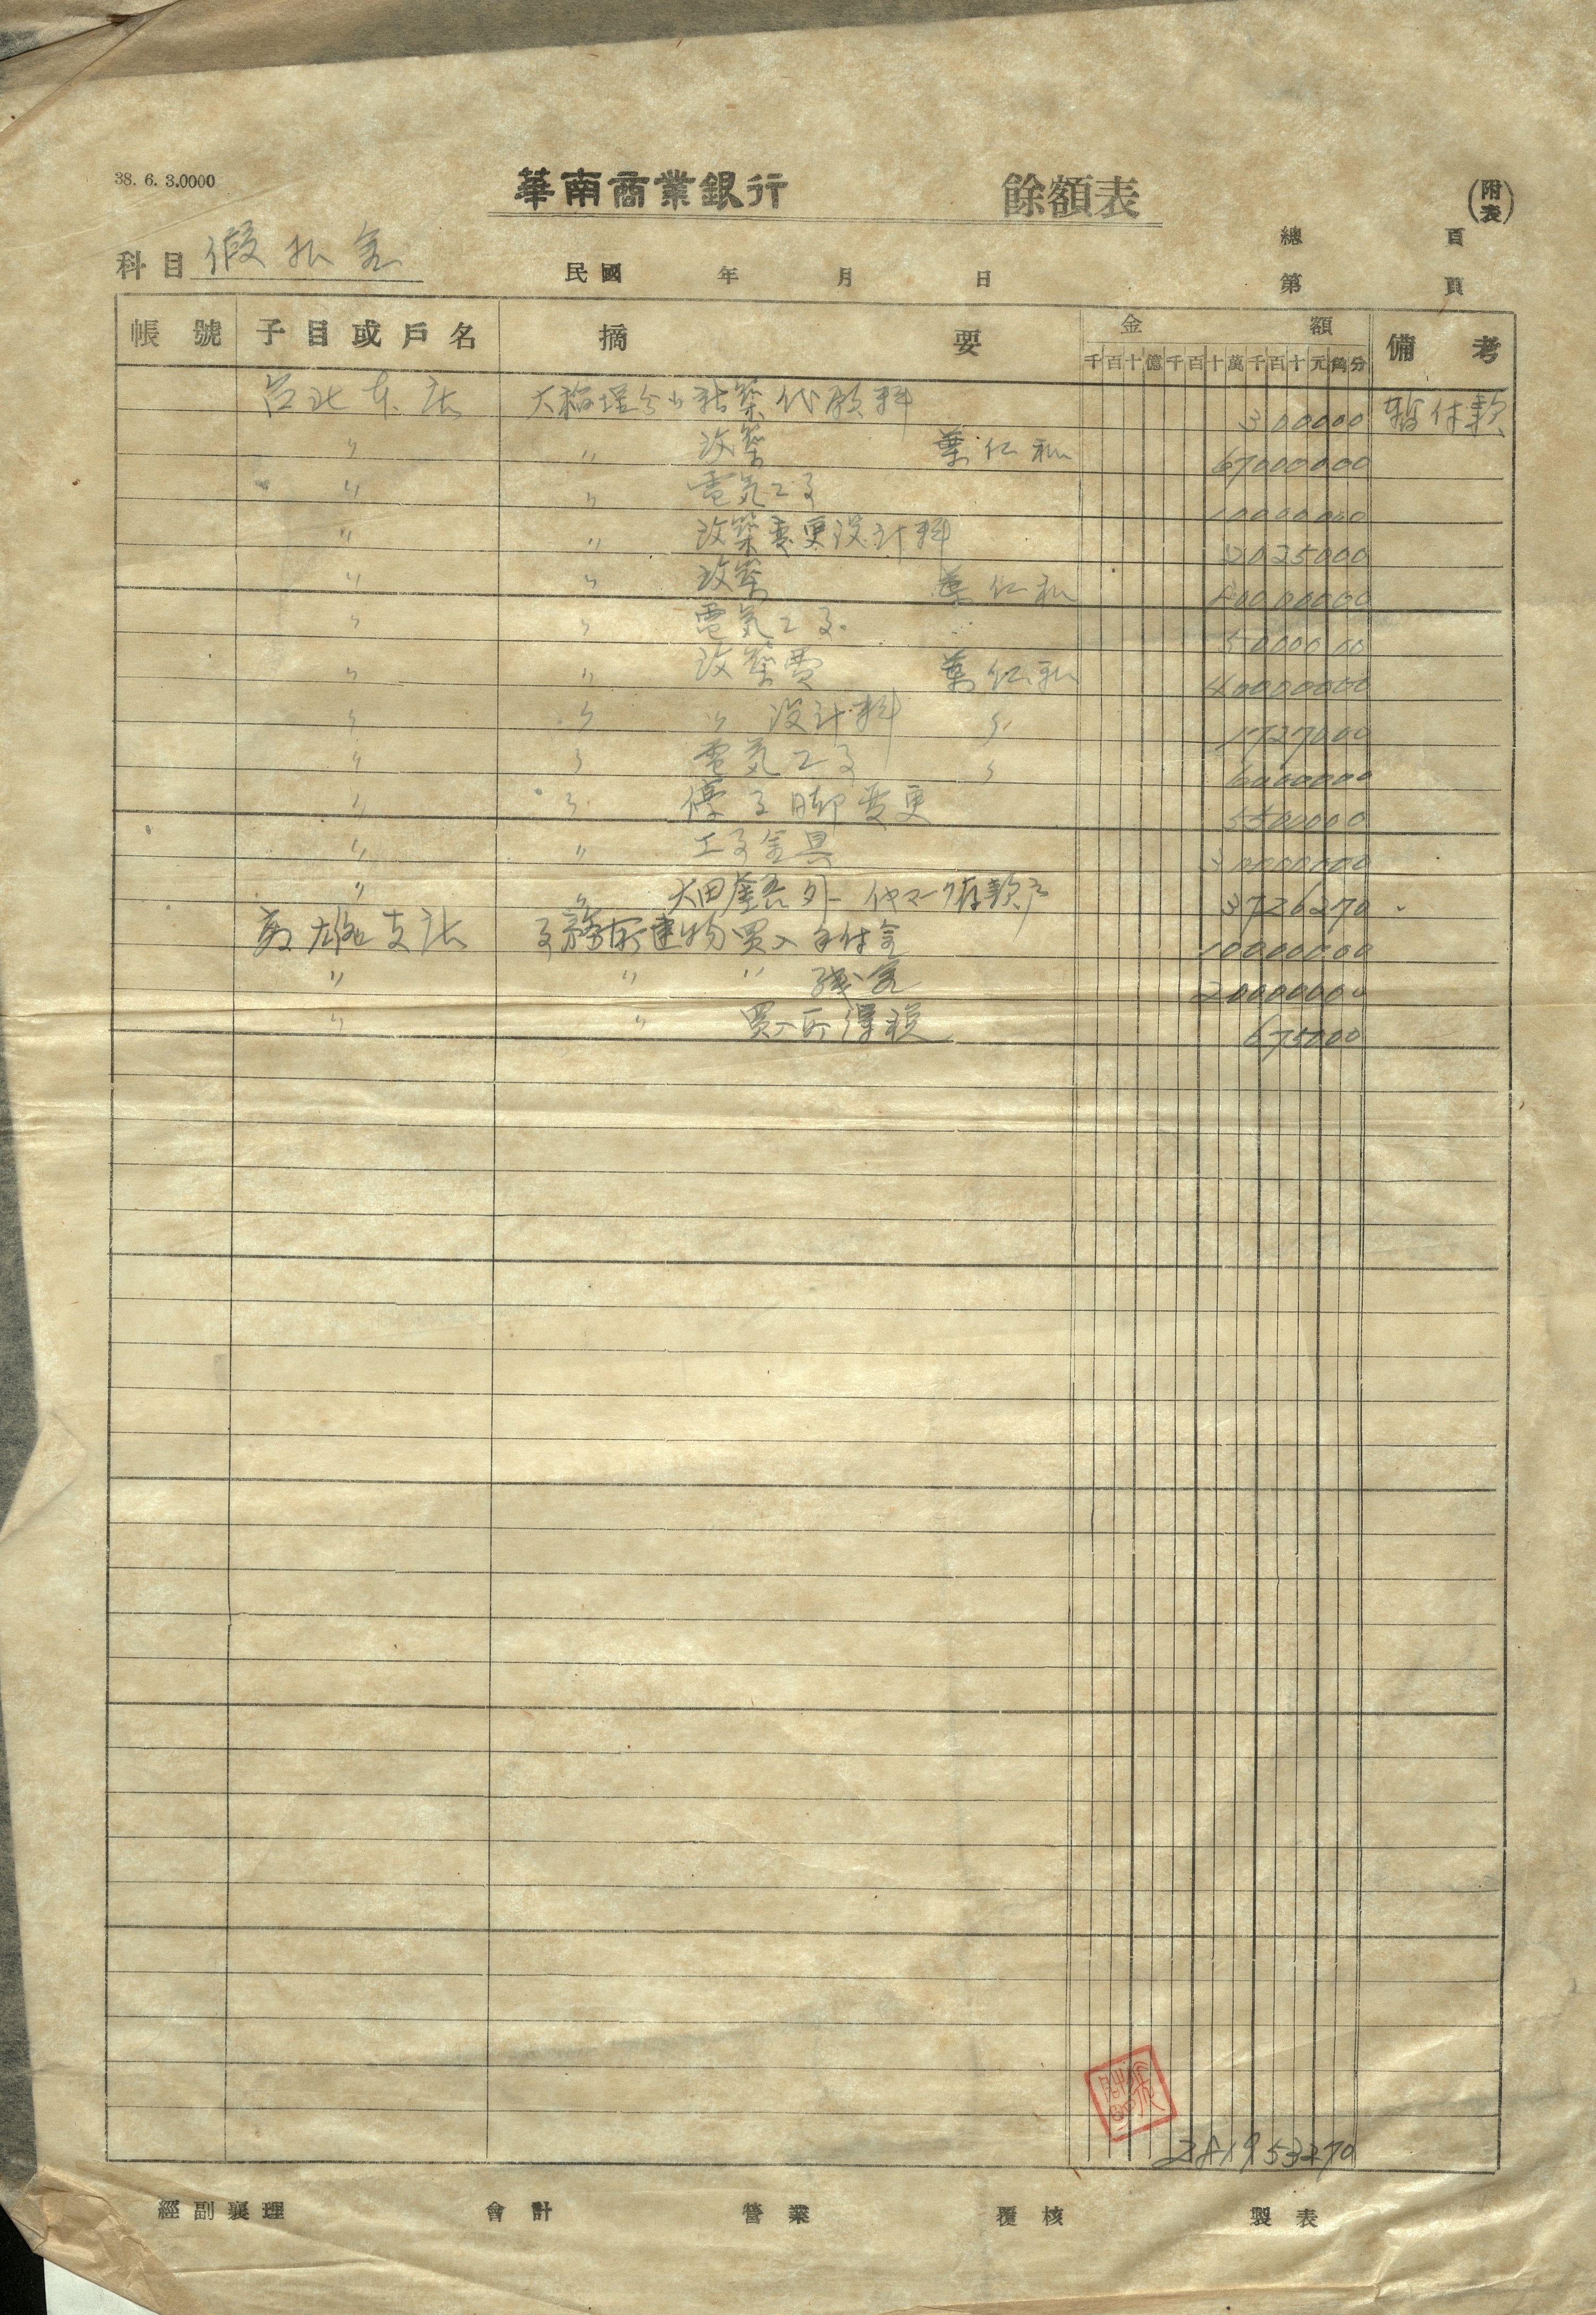 38. 6. 3.0000
華南商業銀行 餘額表 (附表)
總 頁
科目 假払金 民國 年 月 日 第 頁
帳號 子目或戶名 摘要 金額 備考
千百十億千百十萬千百十元角分
台北支店 大稻埕 築代願料 300000 暫付款
〃 〃 改築 葉仁和 67000000
〃 〃 電気工事 10000000
〃 〃 改築変更設計料 2025000
〃 〃 改築 葉仁和 80000000
〃 〃 電気工事 5000000
〃 〃 改築費 葉仁和 40000000
〃 〃 〃 設計料 〃 1727000
〃 〃 電気工事 〃 6000000
〃 〃 脚変更 5500000
〃 〃 工事金具 30000000
〃 〃 太田 外一 存款 3726270
高雄支店 事務所建物買入手付金 10000000
〃 〃 〃 残金 20000000
〃 〃 買入所得税 675000
281953270
經副襄理 會計 營業 覆核 製表